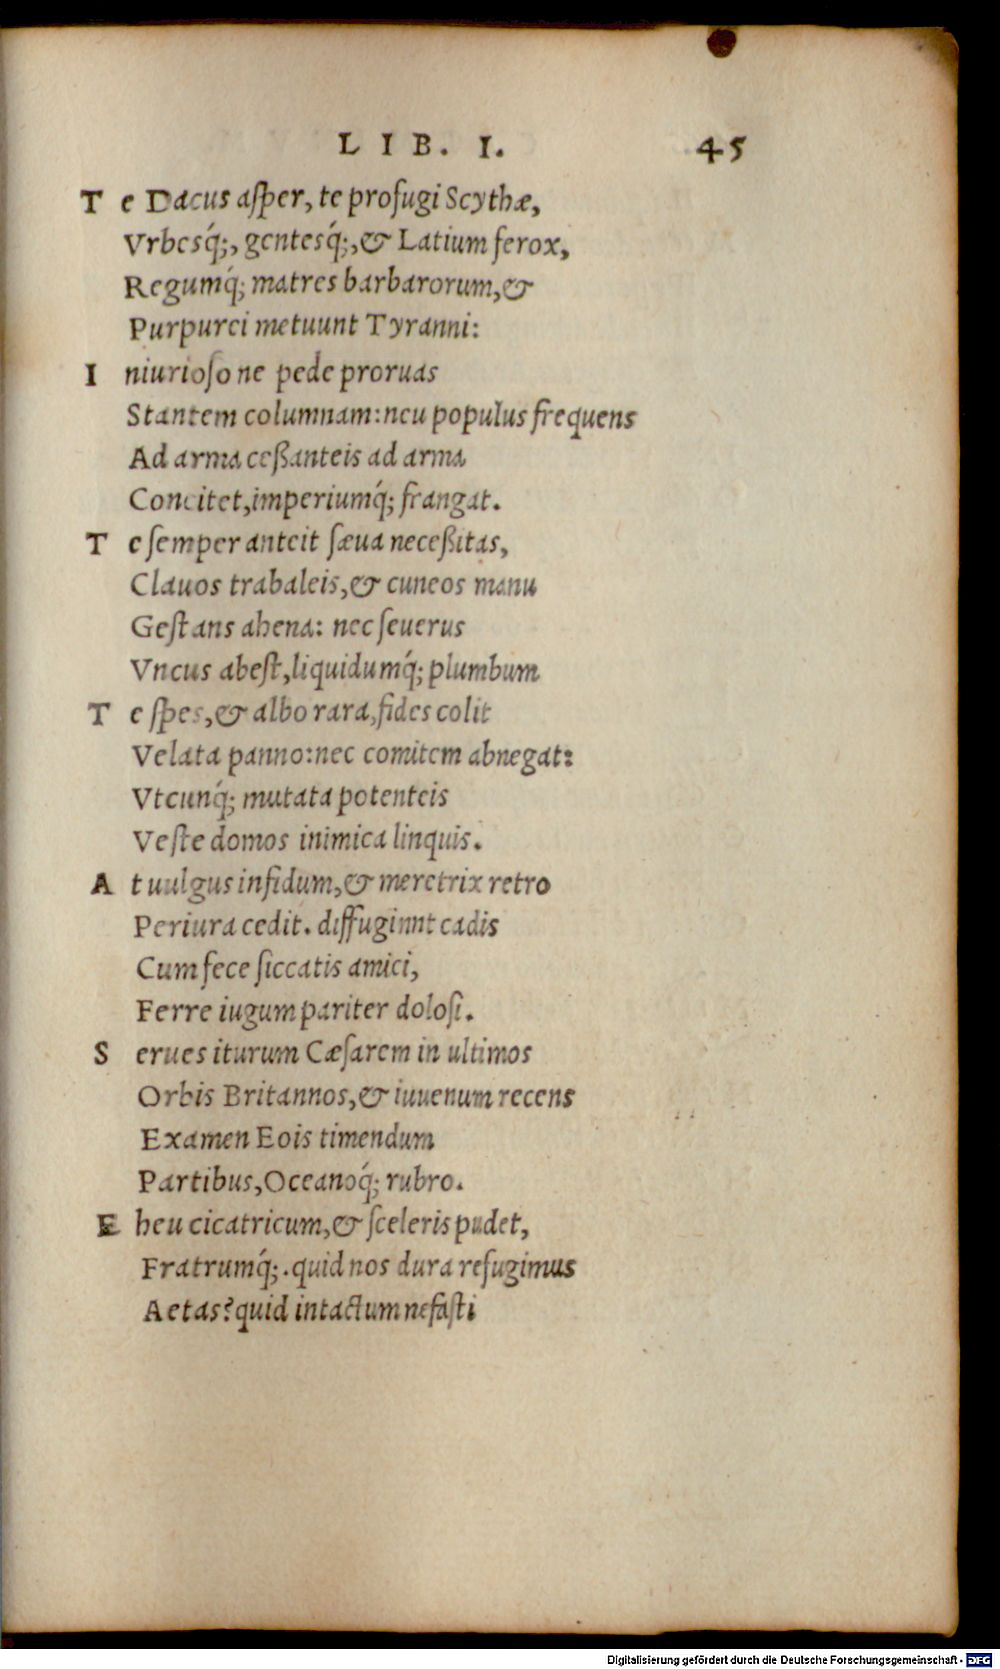 LIB. I. 45
T e Dacus aſper, te profugi Scythæ,
Vrbesq́;, gentesq́;,& Latium ferox,
Regumq́; matres barbarorum,&
Purpurei metuunt Tyranni:
I niurioſo ne pede proruas
Stantem columnam:neu populus frequens
Ad arma ceßanteis ad arma
Concitet,imperiumq́; frangat.
T e ſemper anteit ſæua neceßitas,
Clauos trabaleis,& cuneos manu
Geſtans ahena: nec ſeuerus
Vncus abeſt,liquidumq́; plumbum
T e ſpes,& albo rara,fides colit
Velata panno:nec comitem abnegat:
Vtcunq́; mutata potenteis
Veſte domos inimica linquis.
A t uulgus infidum,& meretrix retro
Periura cedit. diffuginnt cadis
Cum fece ſiccatis amici,
Ferre iugum pariter doloſi.
S erues iturum Cæſarem in ultimos
Orbis Britannos,& iuuenum recens
Examen Eois timendum
Partibus,Oceanoq́; rubro.
E heu cicatricum,& ſceleris pudet,
Fratrumq́;.quid nos dura refugimus
Aetas?quid intactum nefaſti
Digitalisierung gefördert durch die Deutsche Forschungsgemeinschaft - DFG